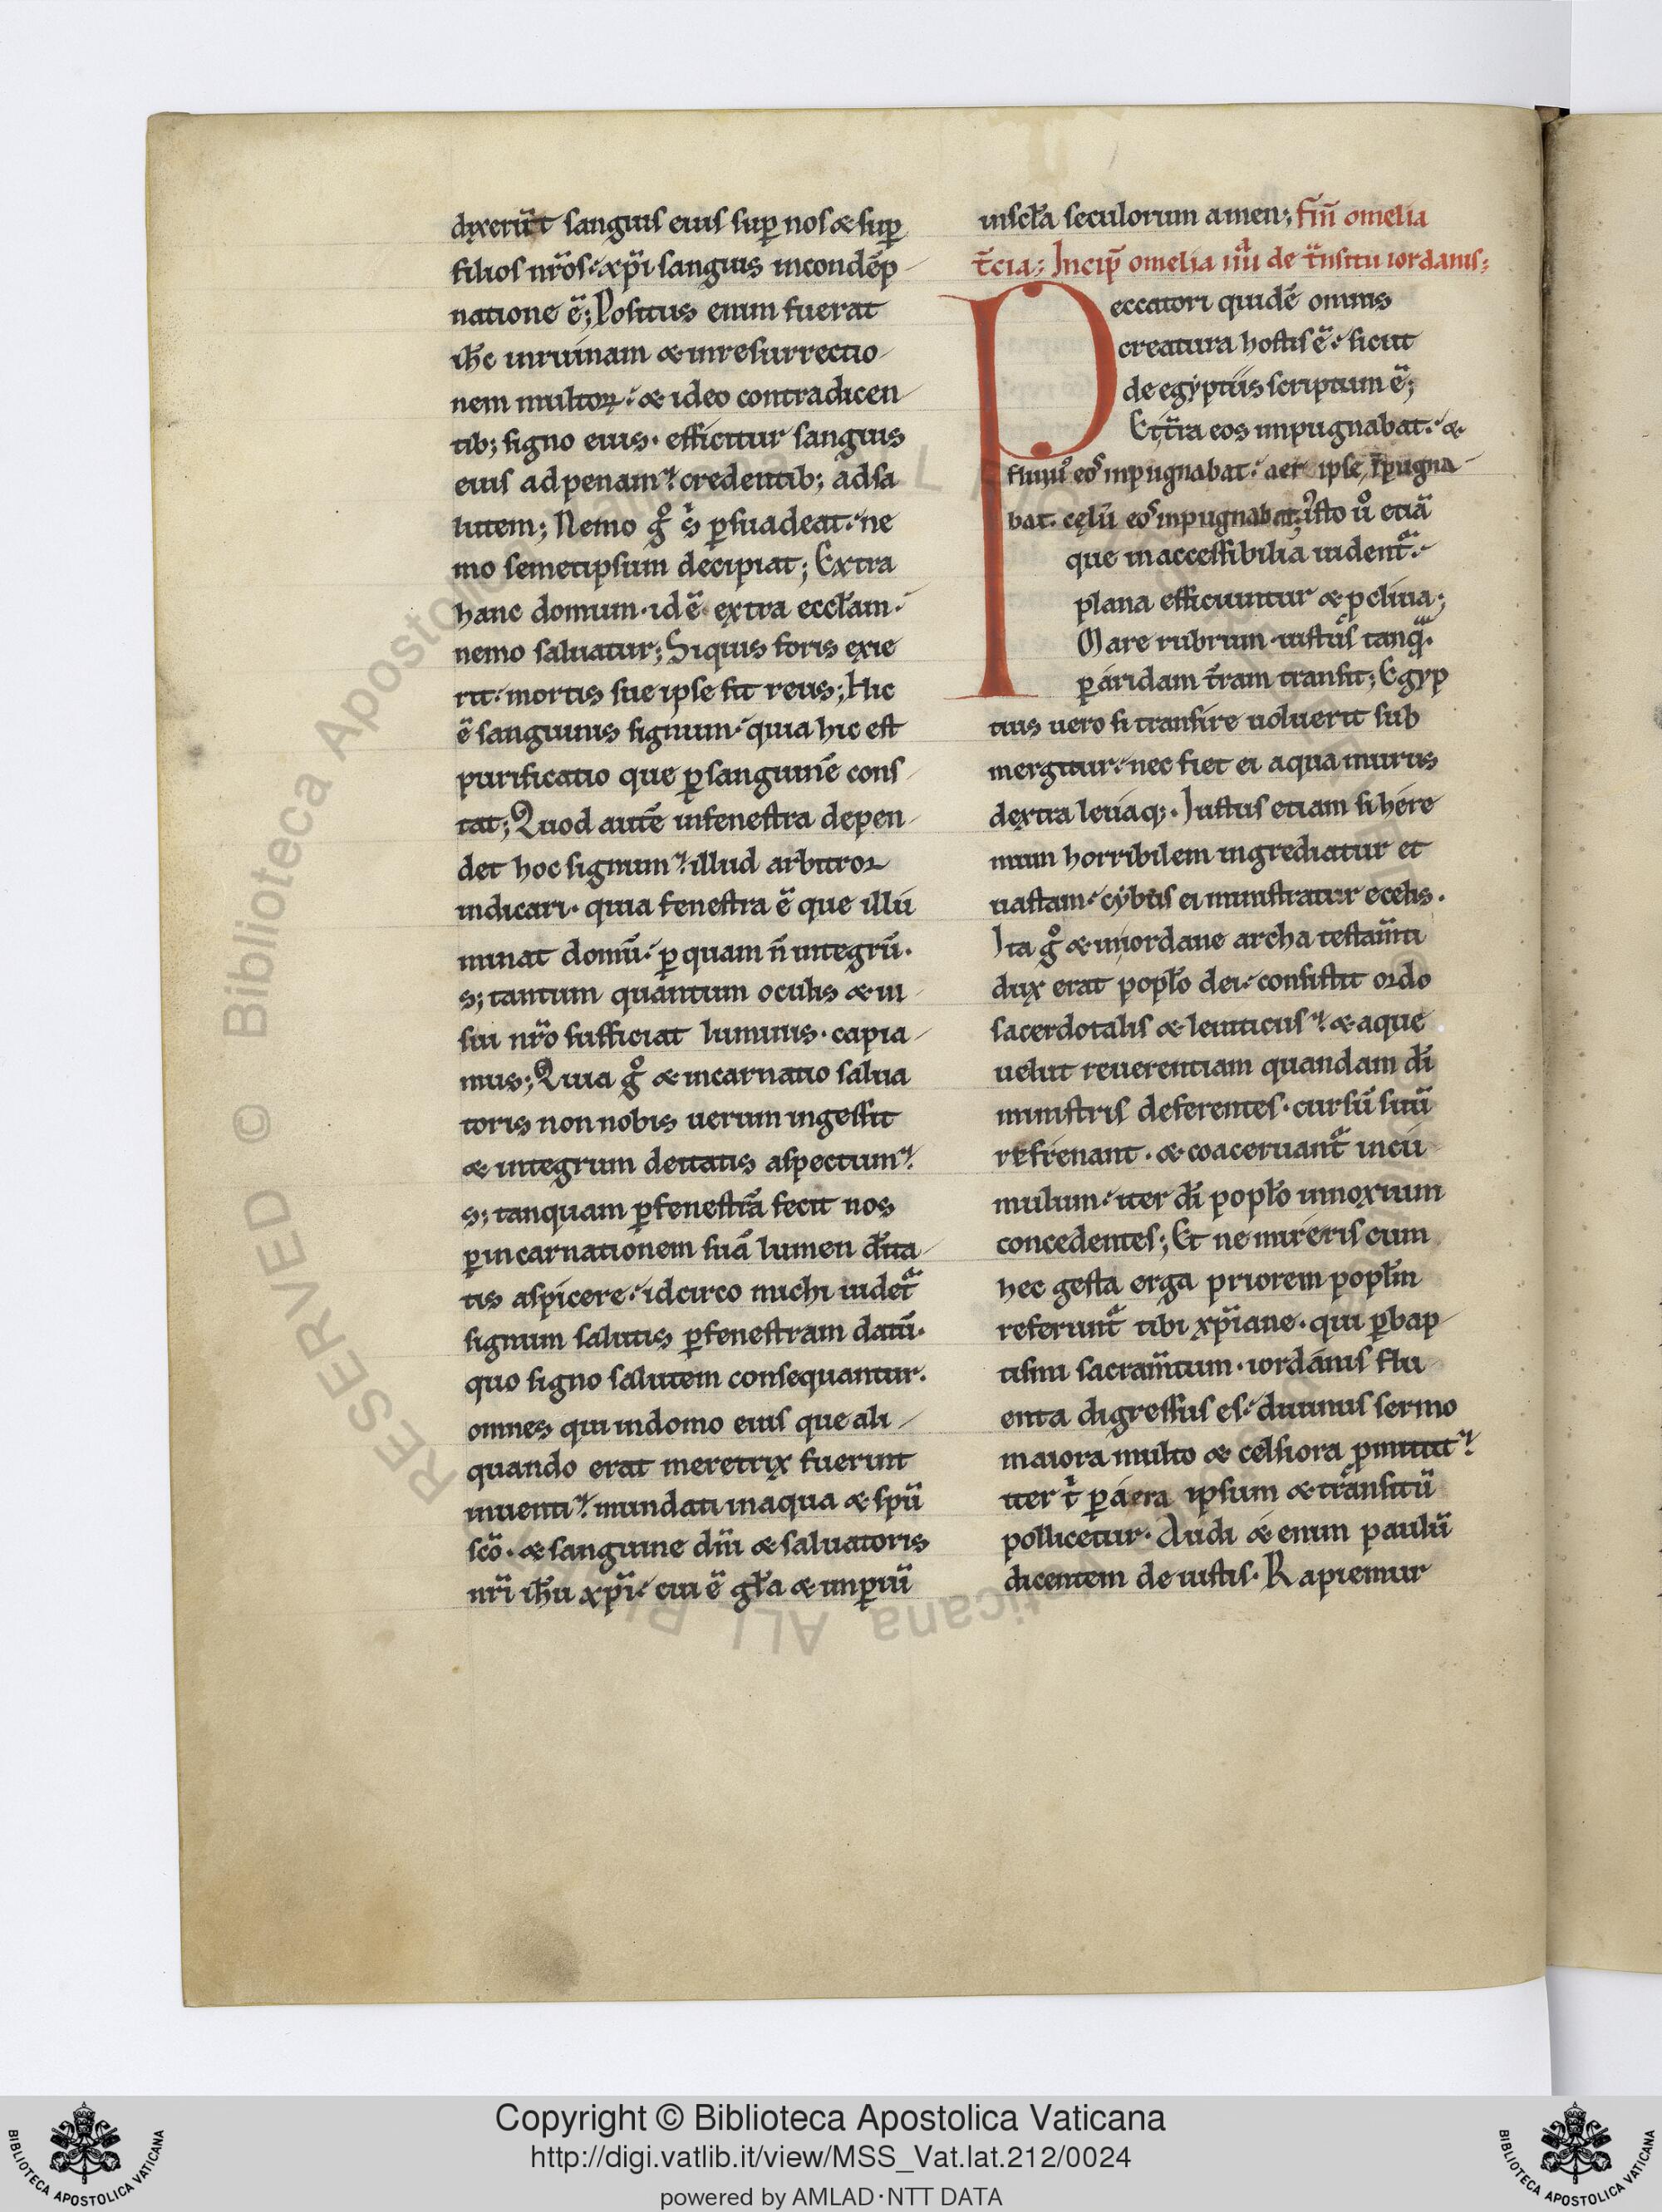 dixerūt sanguis eius sup̱ nos & sup̱
filios nr̄os · & xp̄i sanguis incondēp
natione ē; Positus enim fuerat
ih̄c inruinam & inresurrectio
nem multoꝝ · & ideo contradicen
tib; signo eius · efficitur sanguis
eius ad penam · credentib; adsa
lutem; Nemo gͦ s̄ ꝑsuadeat · ne
mo semetipsum decipiat; Extra
hanc domum · id ē extra eccl̄am ·
nemo saluatur; Siquis foris exie
rit · mortis sue ipse fit reus; Hic
ē sanguinis signum · quia hic est
purificatio que ꝑ sanguinē cons
tat; Quod autē infenestra depen
det hoc signum · illud arbitror
indicari · quia fenestra ē que illu
minat domū · ꝑ quam n̄ integrū ·
s; tantum quantum oculis & ui
sui nr̄o sufficiat luminis · capia
mus; Quia gͦ & incarnatio salua
toris non nobis uerum ingessit
& integrum deitatis aspectum ·
s; tanquam ꝑ fenestrā fecit nos
ꝑ incarnationem suā lumen d̄ita
tis aspicere · idcirco michi uidet᷑
signum salutis ꝑ fenestram datū ·
quo signo salutem consequantur ·
omnes qui indomo eius que ali
quando erat meretrix fuerint
inuenti · mundati inaqua & spū
scō · & sanguine dn̄i & saluatoris
nr̄i ih̄u xp̄i · cui ē gl̄a & imꝑiū
inscl̄a seculorum amen; Fin̄ omelia
t̄cia; Incip̄ omelia iiiiᵃ de t̄nsitu iordanis;
Peccatori quidē omnis
creatura hostis ē · sicut
de egyptiis scriptum ē;
Et t̄ra eos inpugnabat · &
fluuiꝰ eos inpugnabat · aer ipse īpugna
bat · cęlū eos inpugnabat; iusto uͦ etiā
que inaccessibilia uident᷑ ·
plana efficiuntur & ꝓcliua;
Mare rubrum · iustus tanqᵃ
ꝑ aridam t̄ram transit; Egyp
tius uero si transire uoluerit sub
mergitur · nec fiet ei aqua murus
dextra leuaq; · Iustus etiam si here
mum horribilem ingrediatur et
uastam · cybus ei ministratur ecelis ·
Ita gͦ & iniordane archa testam̄ti
dux erat popl̄o dei · consistit ordo
sacerdotalis & leuiticus · & aque
uelut reuerentiam quandam dī
ministris deferentes · cursū suū
refrenant · & coaceruant᷑ incu
mulum · iter dī popl̄o innoxium
concedentes; Et ne mireris cum
hec gesta erga priorem popl̄m
referunt᷑ tibi xp̄iane · qui ꝑ bap
tismi sacram̄tum · iordanis flu
enta digressus es · diuinus sermo
maiora multo & celsiora ꝓmittit ·
iter t̄ ꝑ aera ipsum & transitū
pollicetur · Audi & enim paulū
dicentem de iustis · Rapiemur
Copyright © Biblioteca Apostolica Vaticana
http://digi.vatlib.it/view/MSS_Vat.lat.212/0024
powered by AMLAD·NTT DATA